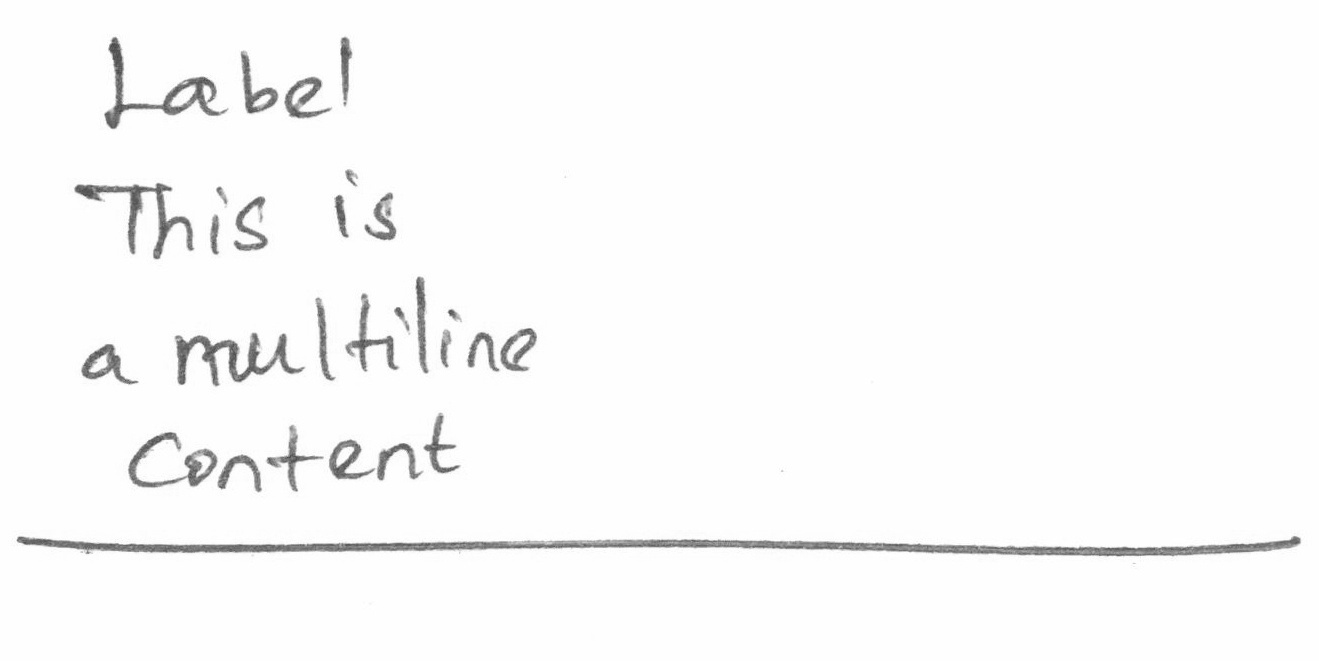 Label
This is
a multiline
Content